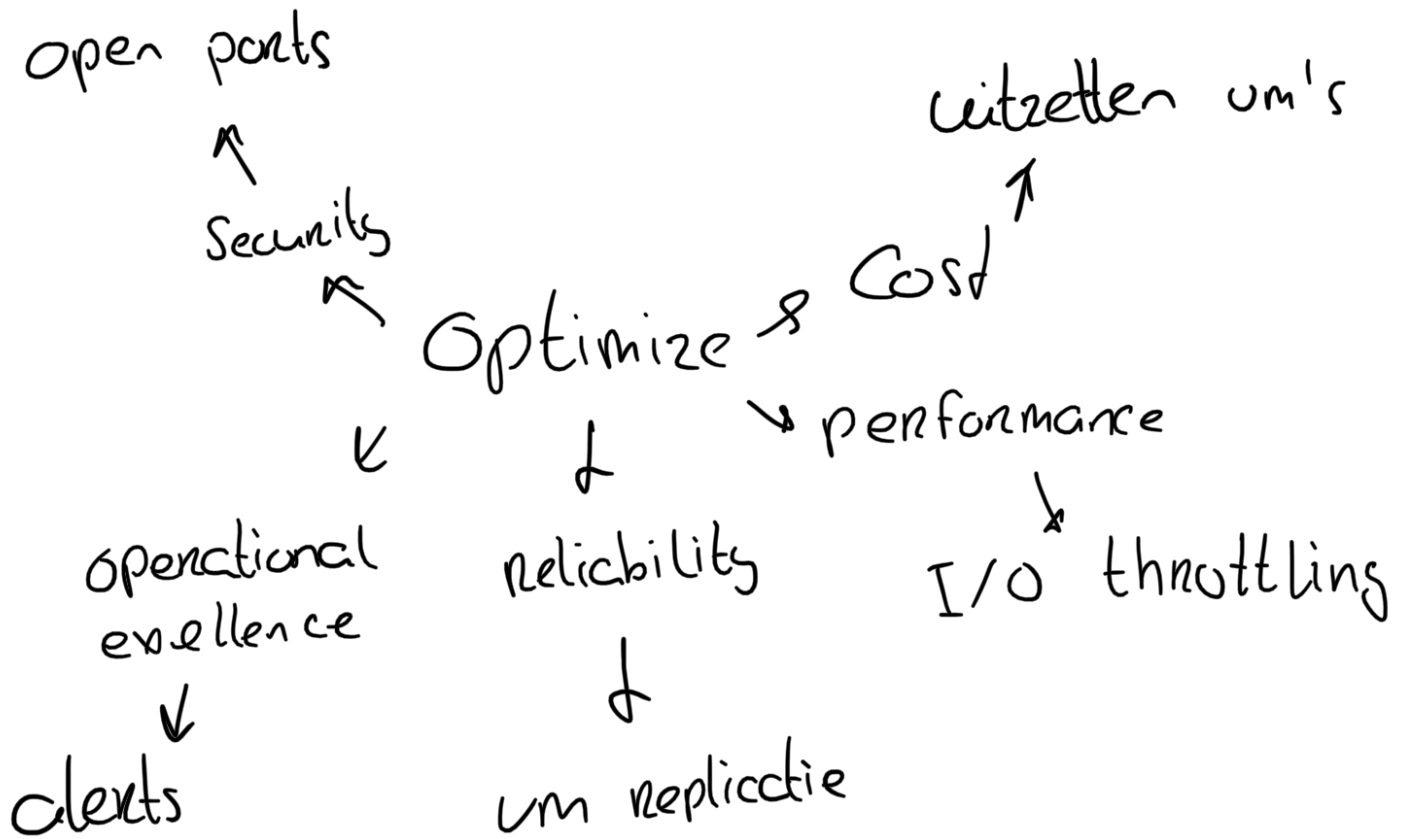 open ports
uitzetten vm's
security
Cost
Optimize
performance
operational
exellence
reliability
I/O throttling
alerts
vm replicatie